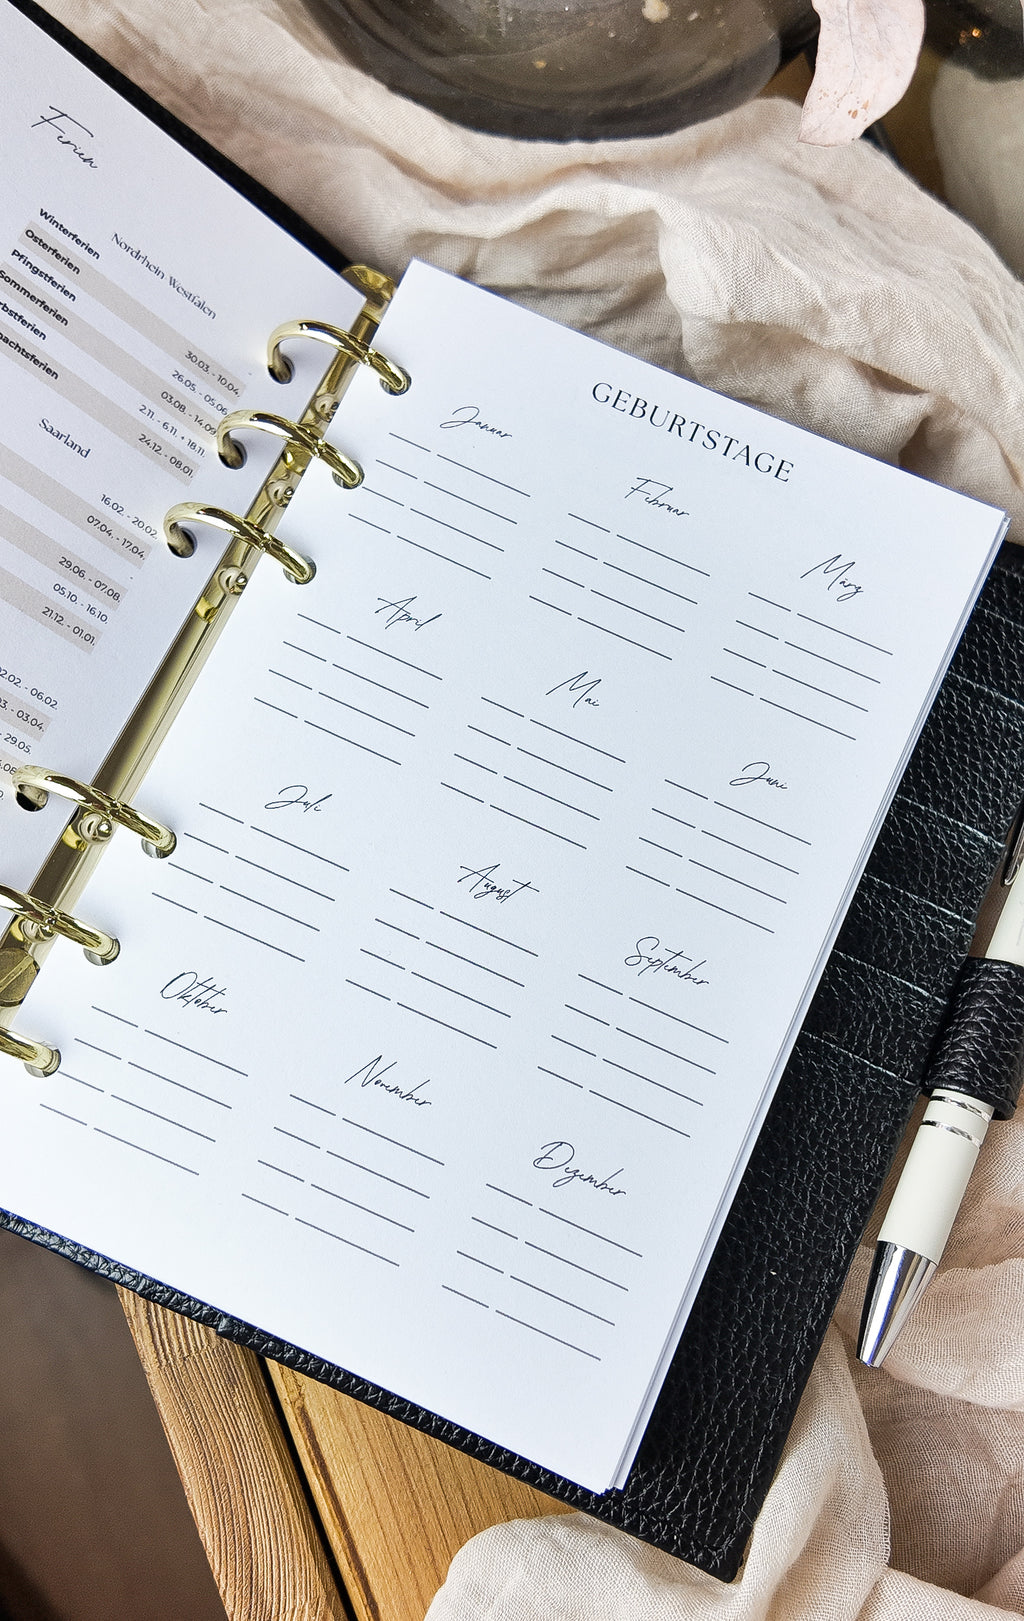 Ferien
Nordrhein Westfalen
Winterferien
Osterferien
30.03. - 10.04.
Pfingstferien
26.05. - 05.06.
Sommerferien
03.08. - 14.09
2.11. - 6.11. + 18.11.
24.12. - 08.01.
Saarland
16.02. - 20.02.
07.04. - 17.04.
29.06. - 07.08.
05.10. - 16.10.
21.12. - 01.01.
02.02 - 06.02.
- 03.04.
- 29.05.
GEBURTSTAGE
Januar
Februar
März
April
Mai
Juni
Juli
August
September
Oktober
November
Dezember